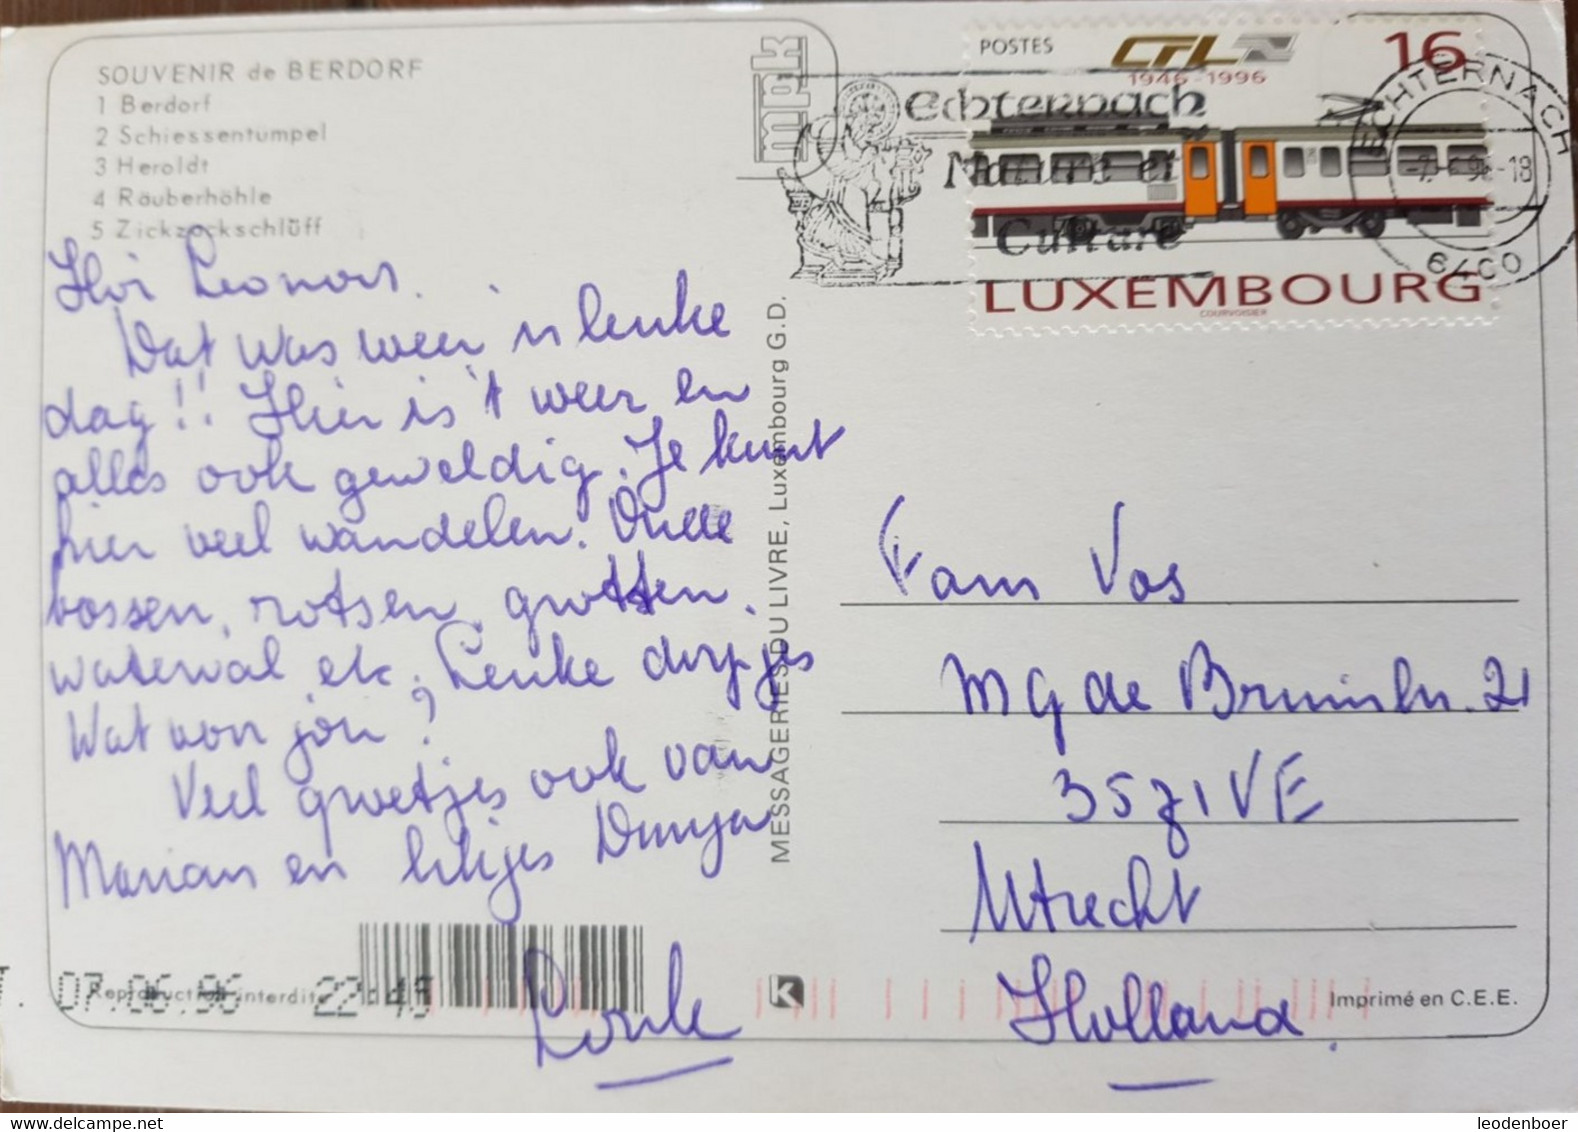 SOUVENIR de BERDORF
1 Berdorf
2 Schiessentumpel
3 Heroldt
4 Räuberhöhle
5 Zickzackschlüff
Hoi Leonoor.
Dat was weer 'n leuke
dag!! Hier is 't weer en
alles ook geweldig. Je kunt
hier veel wandelen. Oude
bossen, rotsen, grotten,
waterval etc. Leuke dorpjes
Wat voor jou?
Veel groetjes ook van
Marian en Dunya
MESSAGERIES DU LIVRE, Luxembourg G.D.
mpk
POSTES CFL 16
1946-1996
Echternach
Nature et
Culture
ECHTERNACH
-18
6400
LUXEMBOURG
COURVOISIER
Fam Vos
MG de Bruinln. 21
3571VE
Utrecht
Holland.
07.06.96 22:45
Reproduction interdite
K
Imprimé en C.E.E.
leodenboer